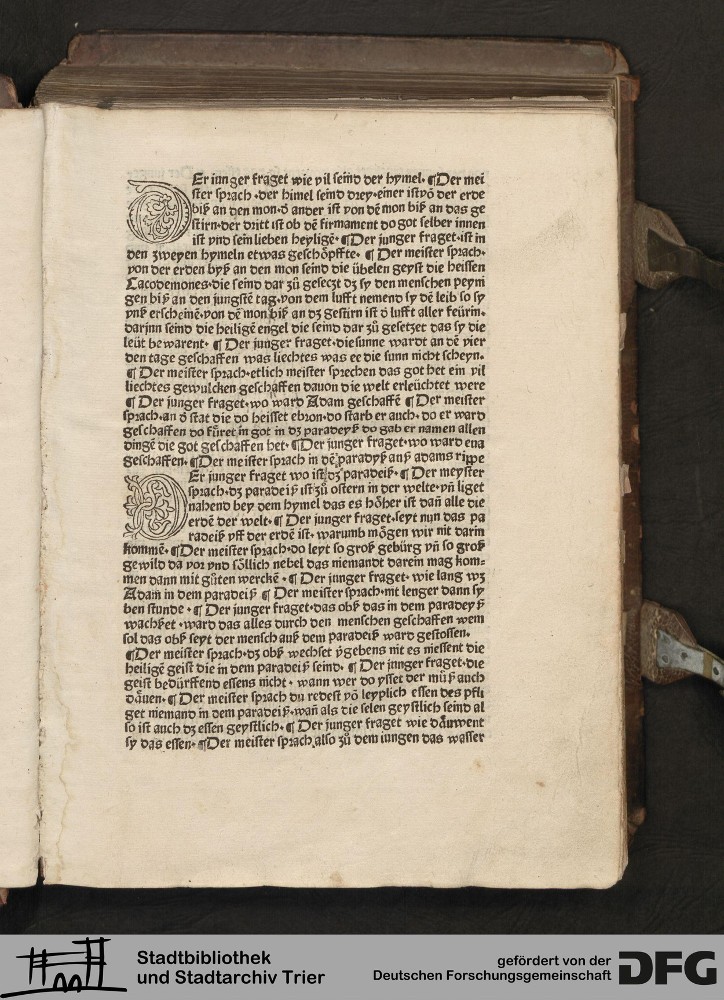 DEr iunger fraget wie vil seind der hymel. ¶Der mei
ster sprach .der himel seind drey.einer ist võ der erde
biß an den mon.ð ander ist von dē mon biß an das ge
stirn.der dritt ist ob dē firmament do got selber innen
ist vnd sein lieben heyligē. ¶Der junger fraget.ist in
den zweyen hymeln etwas geschöpffte. ¶ Der meister sprach.
von der erden byß an den mon seind die übelen geyst die heissen
Cacodemones.die seind dar zů geseczt dz sy den menschen peyni
gen biß an den jungstē tag.von dem lufft nemend sy dē leib so sy
vnß erscheinē.von dē mon biß an dz gestirn ist ð lufft aller feürin.
darjnn seind die heiligē engel die seind dar zů gesetzet das sy die
leüt bewarent. ¶ Der junger fraget.die sunne wardt an dē vier
den tage geschaffen was liechtes was ee die sunn nicht scheyn.
¶ Der meister sprach.etlich meister sprechen das got het ein vil
liechtes gewulcken geschaffen dauon die welt erleüchtet were
¶ Der junger fraget.wo ward Adam geschaffē ¶ Der meister
sprach.an ð stat die do heisset ebron.do starb er auch. do er ward
geschaffen do fůret in got in dz paradeyß do gab er namen allen
dingē die got geschaffen het. ¶Der junger fraget.wo ward eua
geschaffen. ¶Der meister sprach in dē paradyß auß adams rippe
DEr junger fraget wo ist dz paradeiß. ¶ Der meyster
sprach.dz paradeiß ist zů ostern in der welte.vñ liget
nahend bey dem hymel das es höher ist dañ alle die
erdē der welt. ¶ Der junger fraget.seyt nun das pa
radeiß vff der erdē ist. warumb mögen wir nit darin
kommē. ¶Der meister sprach.do leyt so groß gebürg vñ so groß
gewild da vor vnd söllich nebel das niemandt darein mag kom=
men dann mit gůten werckē . ¶ Der junger fraget. wie lang wz
Adam in dem paradeiß ¶ Der meister sprach.nit lenger dann sy
ben stunde . ¶ Der junger fraget.das obß das in dem paradeyß
wachßet .ward das alles durch den menschen geschaffen wem
sol das obß seyt der mensch auß dem paradeiß ward gestossen.
¶Der meister sprach.dz obß wechset vgebens nit es niessent die
heiligē geist die in dem paradeiß seind. ¶ Der junger fraget.die
geist bedürffend essens nicht . wann wer do ysset der můß auch
däuen. ¶ Der meister sprach du redest võ leyplich essen des pfli
get niemand in dem paradeiß.wañ als die selen geystlich seind al
so ist auch dz essen geystlich. ¶ Der junger fraget wie däuwent
sy das essen. ¶Der meister sprach also zů dem jungen das wasser
Stadtbibliothek
und Stadtarchiv Trier
gefördert von der
Deutschen Forschungsgemeinschaft
DFG